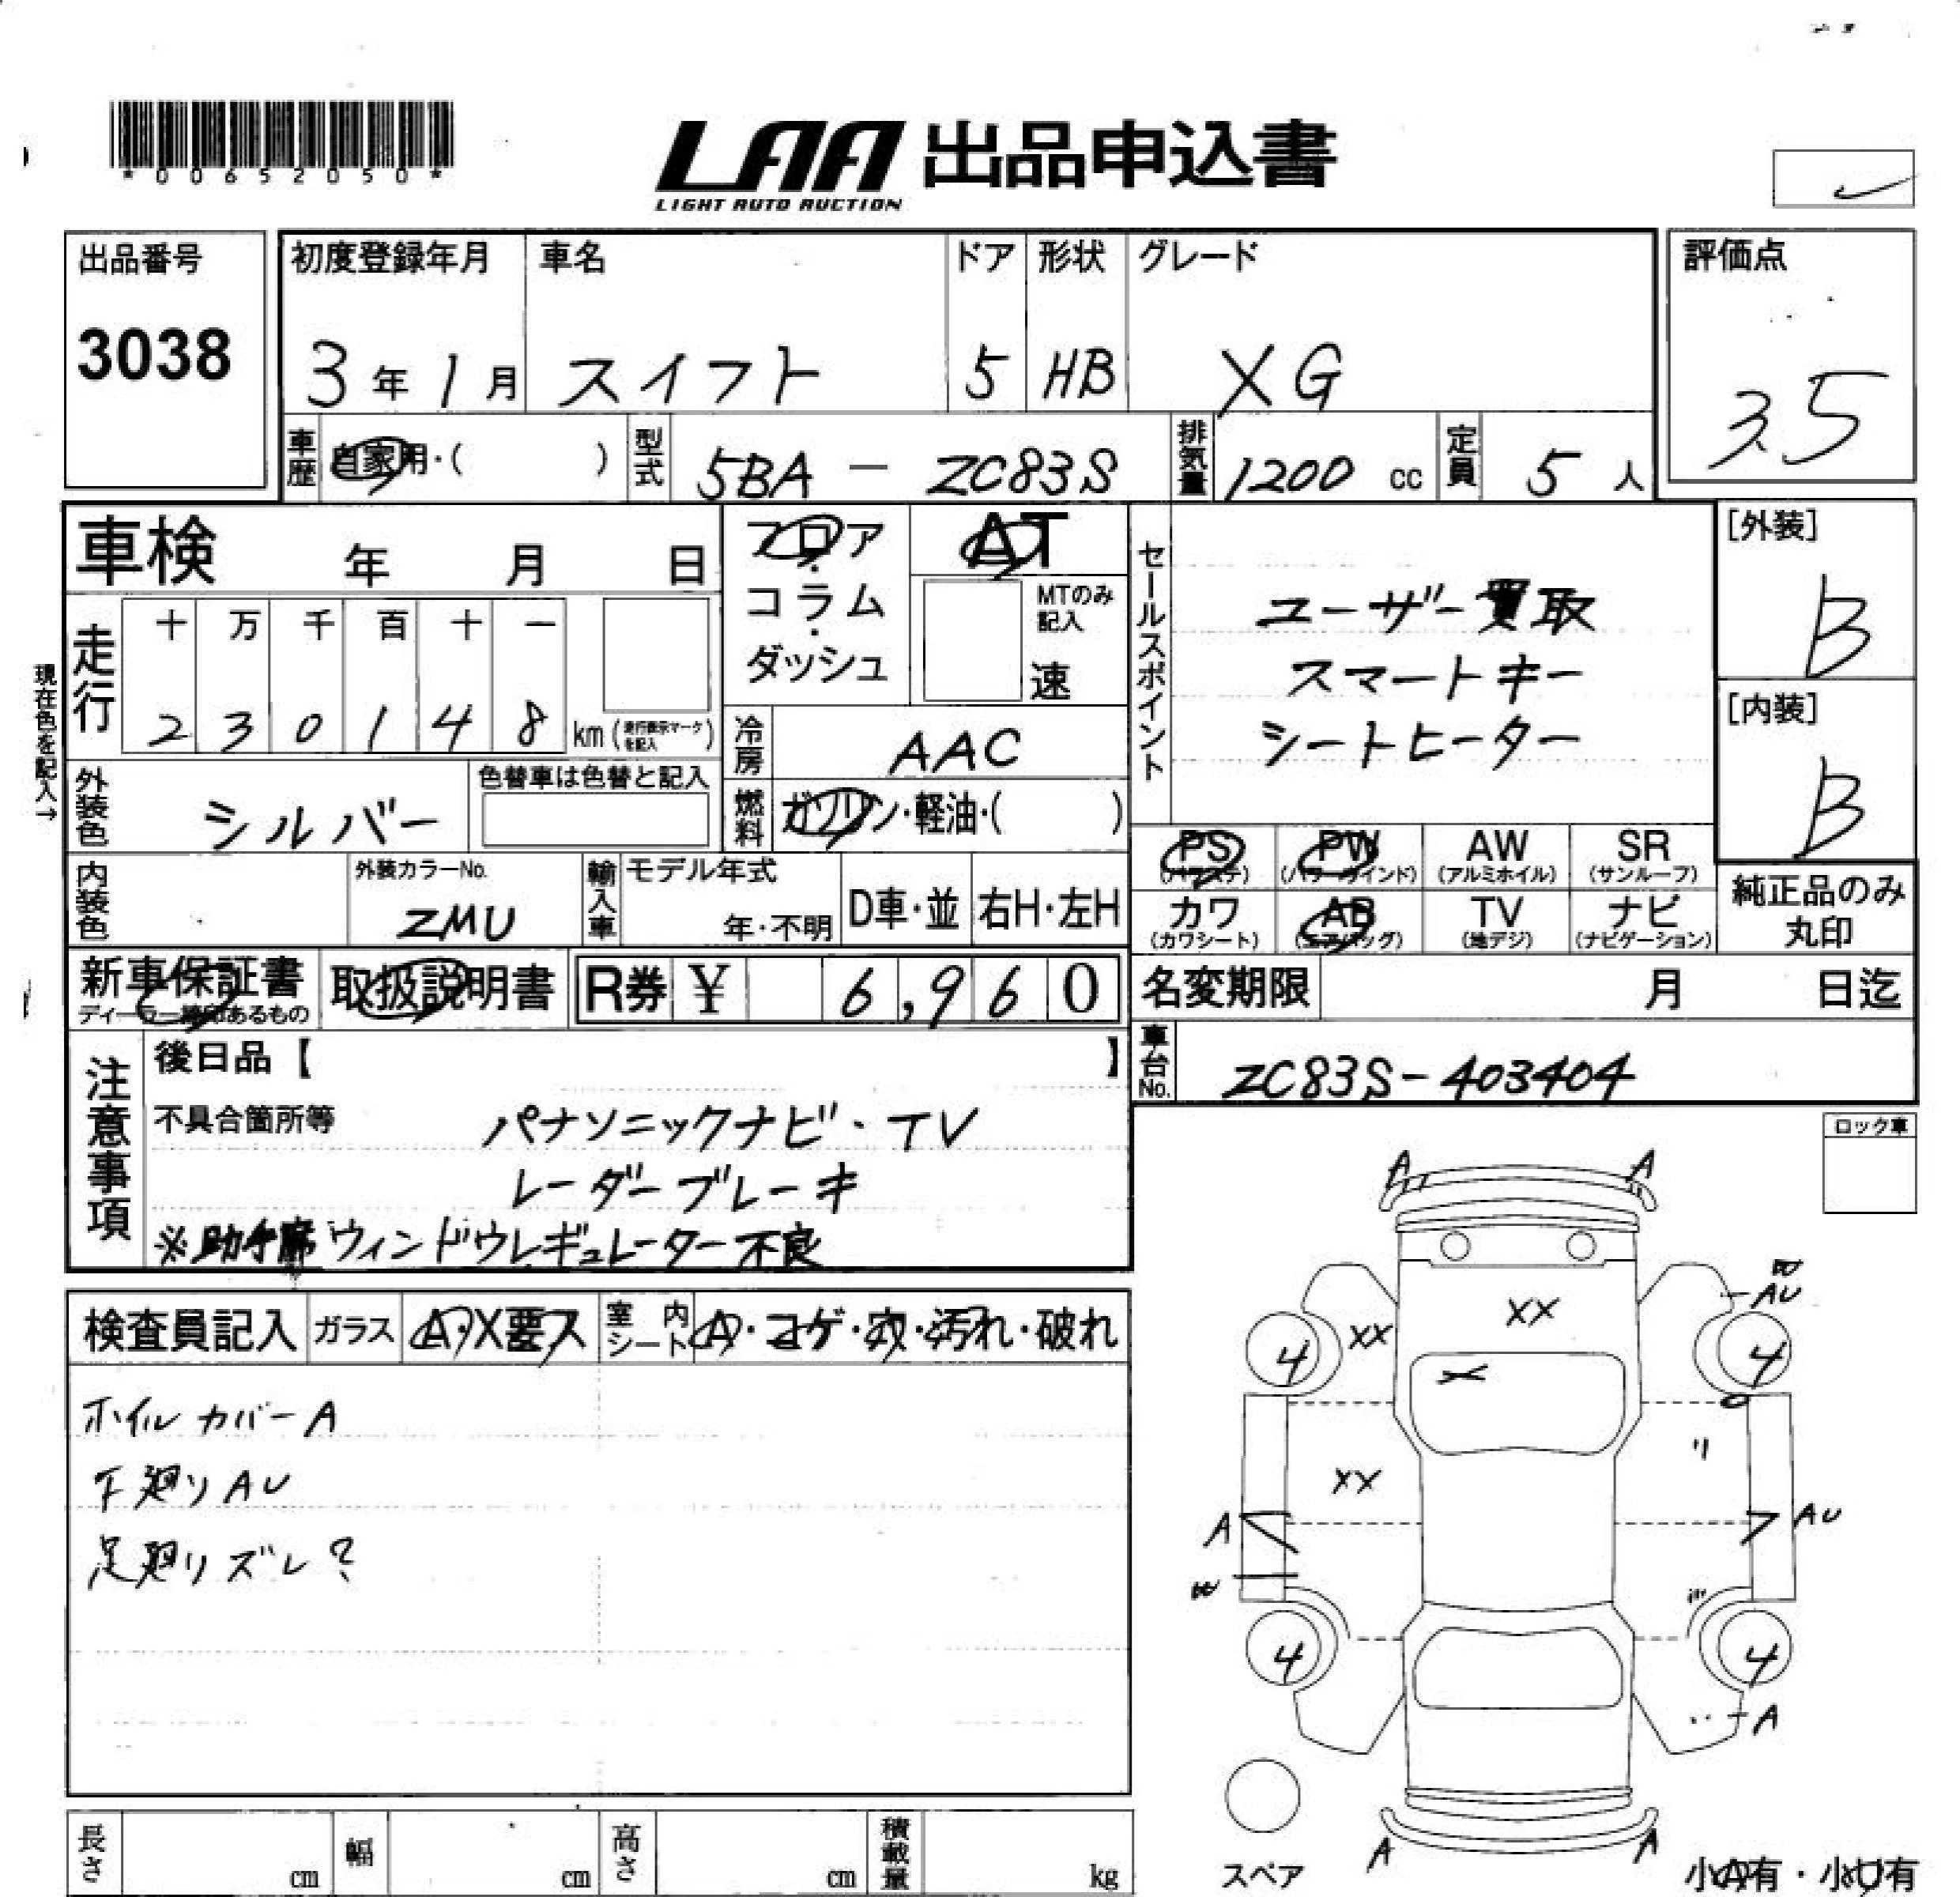 *00652050*
LAA 出品申込書
LIGHT AUTO AUCTION
出品番号
3038
初度登録年月
3年1月
車名
スイフト
ドア
5
形状
HB
グレード
XG
評価点
3.5
車歴
自家用・( )
型式
5BA - ZC83S
排気量
1200 cc
定員
5人
車検 年 月 日
フロア・コラム・ダッシュ
AT
MTのみ記入
速
セールスポイント
ユーザー買取
スマートキー
シートヒーター
[外装]
B
[内装]
B
現在色を記入→
走行
十 万 千 百 十 一
2 3 0 1 4 8 km (走行表示マークを記入)
冷房
AAC
外装色
シルバー
色替車は色替と記入
燃料
ガソリン・軽油・( )
内装色
外装カラーNo.
ZMU
輸入車
モデル年式
年・不明
D車・並
右H・左H
PS (パワステ)
PW (パワーウインド)
AW (アルミホイル)
SR (サンルーフ)
カワ (カワシート)
AB (エアバッグ)
TV (地デジ)
ナビ (ナビゲーション)
純正品のみ丸印
新車保証書
ディーラー捺印あるもの
取扱説明書
R券 ¥ 6,960
名変期限 月 日迄
車台No.
ZC83S-403404
注意事項
後日品【 】
不具合箇所等
パナソニックナビ・TV
レーダーブレーキ
※助手席ウィンドウレギュレーター不良
ロック車
検査員記入
ガラス
A・X要ス
室内シート
A・コゲ・穴・汚れ・破れ
ホイルカバーA
下廻りAU
足廻りズレ?
A A
AU
XX XX
4 4
X
XX
A AU
4 4
A
A A
スペア
小A有・小U有
長さ cm
幅 cm
高さ cm
積載量 kg